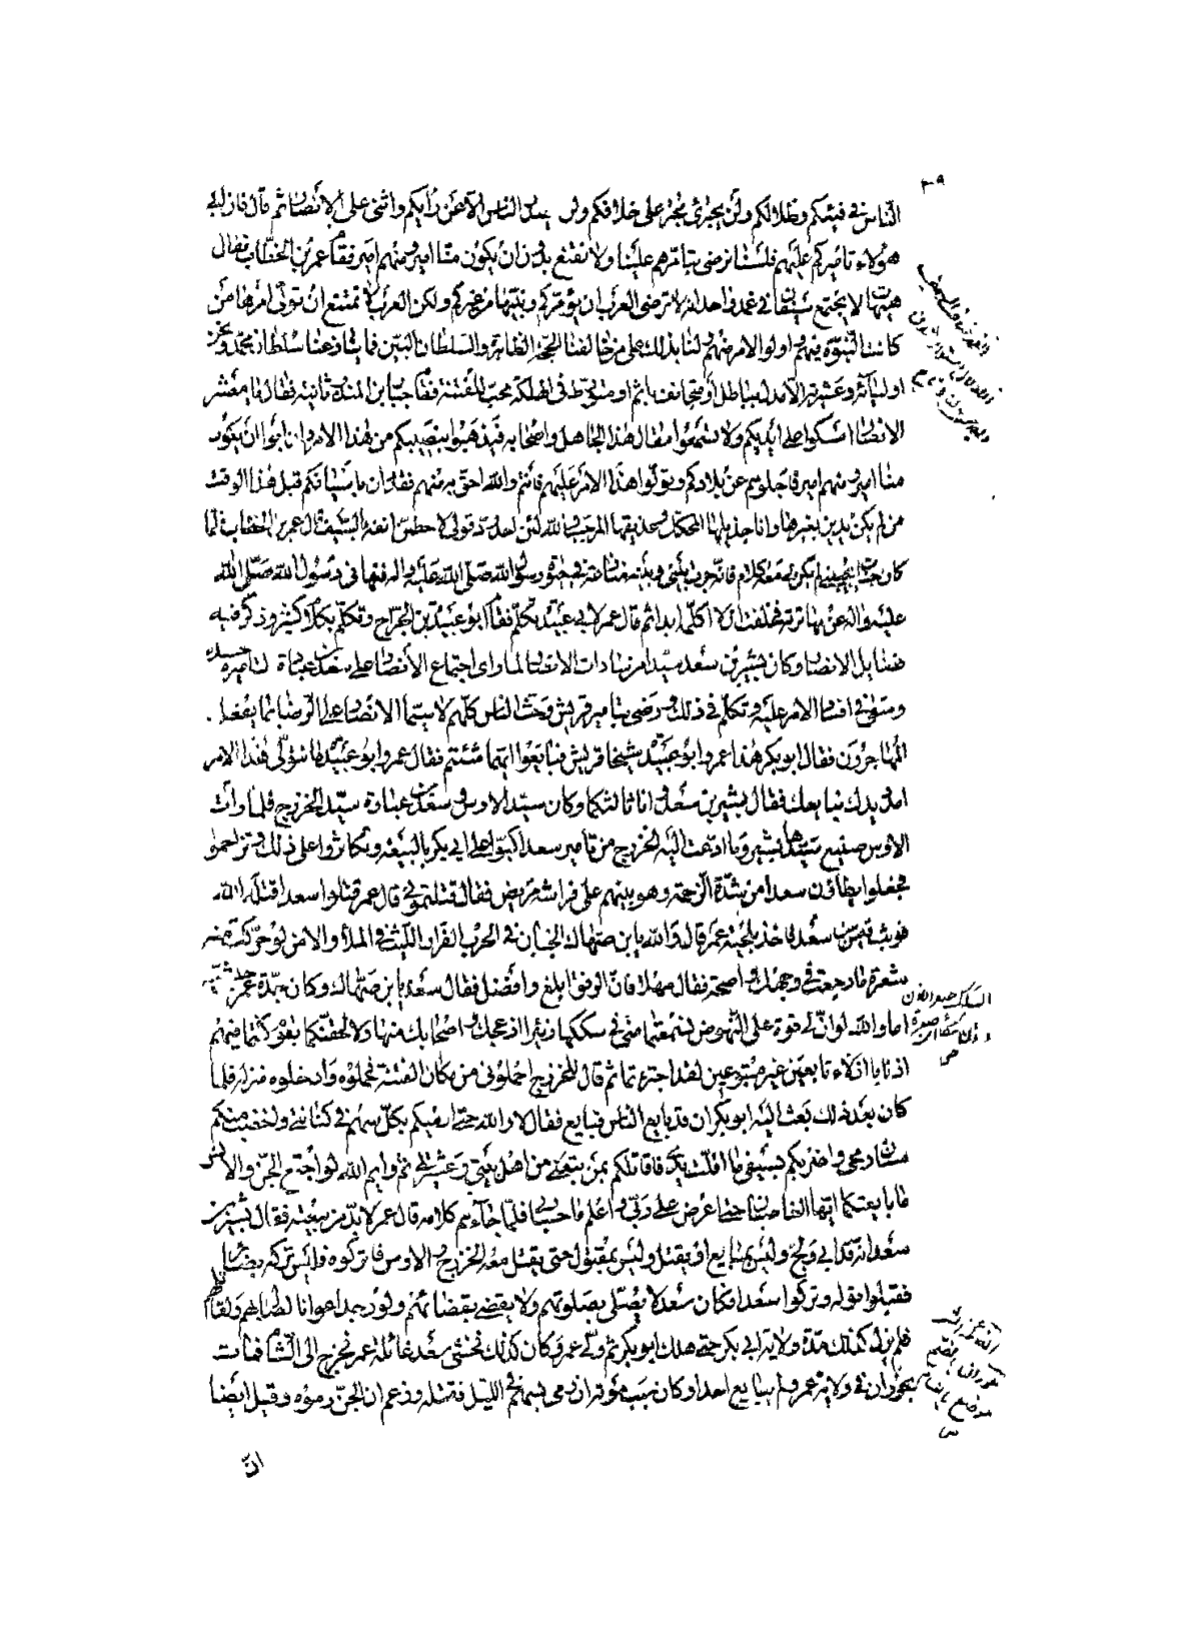 الناس في فيئكم وظلالكم ولن يجترئ مجتر على خلافكم ولن يصدر الناس الا عن رأيكم واثنى على الانصار ثم قال فان ابى
هؤلاء تاميركم عليهم فلسنا نرضى بتاميرهم علينا ولا نقنع بدون ان يكون منا امير ومنهم امير فقام عمر بن الخطاب فقال
هيهات لا يجتمع سيفان في غمد واحد انه لا ترضى العرب ان يؤمركم ونبيها من غيركم ولكن العرب لا تمتنع ان تولى امرها من
كانت النبوة فيهم واولوا الامر منهم ولنا بذلك على من خالفنا الحجة الظاهرة والسلطان البين فما ينازعنا سلطان محمد ونحن
اولياؤه وعشيرته الا مدل بباطل او متجانف باثم او متورط في الهلكة محب للفتنة فقام حباب بن المنذر ثانية فقال يا معشر
الانصار امسكوا على ايديكم ولا تسمعوا مقال هذا الجاهل واصحابه فيذهبوا بنصيبكم من هذا الامر وان ابوا ان يكون
منا امير ومنهم امير فاجلوهم عن بلادكم وتولوا هذا الامر عليهم فانتم والله احق به منهم فقد دان باسيافكم قبل هذا الوقت
من لم يكن يدين بغيرها وانا جذيلها المحكك وعذيقها المرجب والله لئن احد رد قولي لاحطمن انفه بالسيف قال عمر بن الخطاب فلما
كان حباب هو الذي يجيبني لم يكن لي معه كلام فانه جرت بيني وبينه منازعة في حيوة رسول الله صلى الله عليه واله فنهاني رسول الله صلى الله
عليه واله عن مهاترته فحلفت ان لا اكلمه ابدا ثم قال عمر لابي عبيدة تكلم فقام ابو عبيدة بن الجراح وتكلم بكلام كثير وذكر فيه
فضايل الانصار وكان بشير بن سعد سيدا من سادات الانصار لما راى اجتماع الانصار على سعد بن عبادة لتاميره حسده
وسعى في افساد الامر عليه وتكلم في ذلك ورضى بتامير قريش وحث الناس كلهم لا سيما الانصار على الرضا بما يفعله
المهاجرون فقال ابو بكر هذا عمر وابو عبيدة شيخا قريش فبايعوا ايهما شئتم فقال عمر وابو عبيدة ما نتولى هذا الامر
امدد يدك نبايعك فقال بشير بن سعد وانا ثالثكما وكان سيد الاوس وسعد بن عبادة سيد الخزرج فلما رأت
الاوس صنيع سيدها بشير وما ادعت اليه الخزرج من تامير سعد اكبوا على ابي بكر بالبيعة وتكاثروا على ذلك وتزاحموا
فجعلوا يطاؤن سعدا من شدة الزحمة وهو بينهم على فراشه مريض فقال قتلتموني قال عمر اقتلوا سعدا قتله الله
فوثب قيس بن سعد فاخذ بلحية عمر وقال والله يا بن صهاك الجبان في الحرب الفرار الليث في الملأ والامن لو حركت منه
شعرة ما رجعت وفي وجهك واضحة فقال مهلا فان الرفق ابلغ وافضل فقال سعد يا بن صهاك وكان جدة عمر حبشية
اما والله لو ان لي قوة على النهوض لسمعتما مني في سككها زئيرا ازعجك واصحابك منها ولالحقتكما بقوم كنتما فيهم
اذنابا اذلاء تابعين غير متبوعين لقد اجترئتما ثم قال للخزرج احملوني من مكان الفتنة فحملوه وادخلوه منزله فلما
كان بعد ذلك بعث اليه ابو بكر ان قد بايع الناس فبايع فقال لا والله حتى ارميكم بكل سهم في كنانتي واخضب منكم
سنان رمحي واضربكم بسيفي ما اقلت يدي فاقاتلكم بمن تبعني من اهل بيتي وعشيرتي ثم وايم الله لو اجتمع الجن والانس
ما بايعتكما ايها الغاصبان حتى اعرض على ربي واعلم ما حسابي فلما جاءهم كلامه قال عمر لا بد من بيعته فقال بشير بن
سعد انه قد ابى ولج وليس بمبايع او يقتل وليس بمقتول حتى يقتل معه الخزرج والاوس فاتركوه فليس تركه بضائر
فقبلوا قوله وتركوا سعدا فكان سعد لا يصلي بصلوتهم ولا يقضي بقضائهم ولو وجد اعوانا لصال بهم ولقاتلهم
فلم يزل كذلك مدة ولاية ابي بكر حتى هلك ابو بكر ثم ولى عمر وكان كذلك فخشى سعد غائلة عمر فخرج الى الشام فمات
بحوران في ولاية عمر ولم يبايع احدا وكان سبب موته ان رمى بسهم في الليل فقتله وزعم ان الجن رموه وقيل ايضا
ان